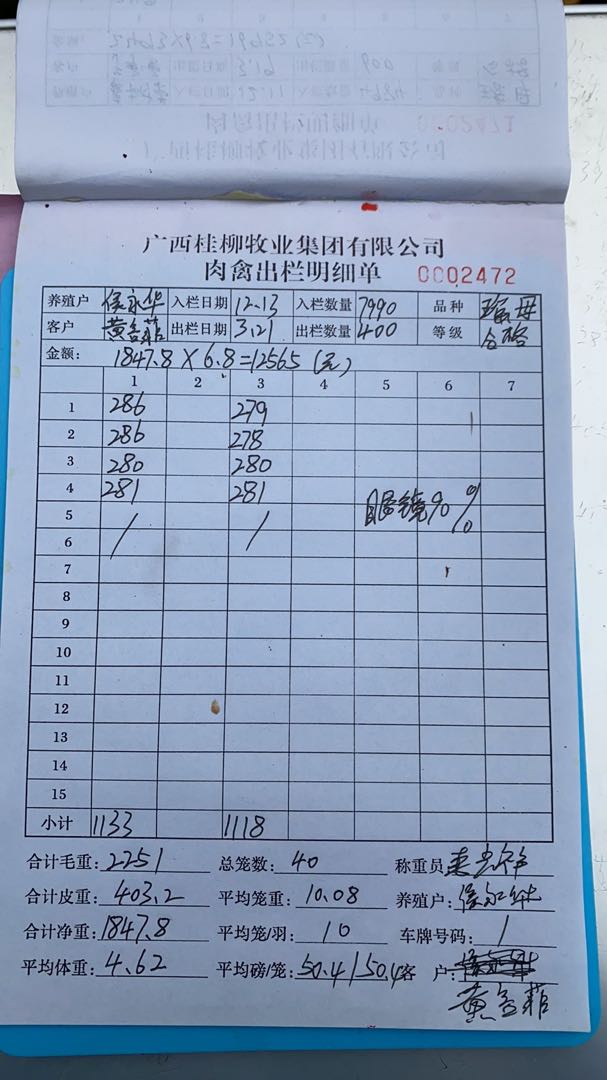 0002471
广西桂柳牧业集团有限公司
肉禽出栏明细单 0002472
养殖户 侯永华 入栏日期 12.13 入栏数量 7990 品种 瑶母
客户 黄名菲 出栏日期 3.21 出栏数量 400 等级 合格
金额: 1847.8×6.8=12565(元)
1 2 3 4 5 6 7
1 286 279
2 286 278
3 280 280
4 281 281 眼镜%%
5
6 / /
7
8
9
10
11
12
13
14
15
小计 1133 1118
合计毛重: 2251 总笼数: 40 称重员
合计皮重: 403.2 平均笼重: 10.08 养殖户: 侯永华
合计净重: 1847.8 平均笼/羽: 10 车牌号码: 1
平均体重: 4.62 平均磅/笼: 50.4/50.4 客户:
黄名菲